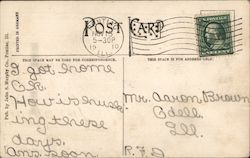 POST CARD
THIS SPACE MAY BE USED FOR CORRESPONDENCE.
THIS SPACE IS FOR ADDRESS ONLY.
PRINTED IN GERMANY
Pub. by John S. Murphy Co., Pontiac, Ill.
5-30P
19 10
ILL.
I got home
O.K.
How is husk
ing these
days.
Ans. soon.
Mr. Aaron Brown
Odell,
Ill.
R. F. D.